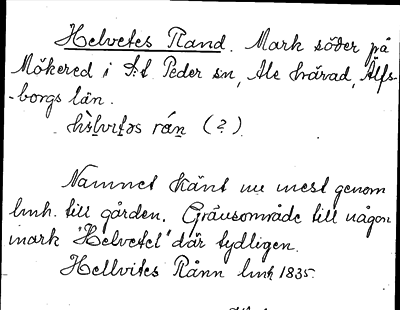 Helvetes Rand. Mark söder på
Mökered i S:t Peder sn, Ale härad, Älfs-
-borgs län.
hèlvitəs rán (?)
Namnet känt nu mest genom
lmh. till gården. Gränsområde till någon
mark "Helvetet" där tydligen.
Hellvites Rånn lmh 1835.